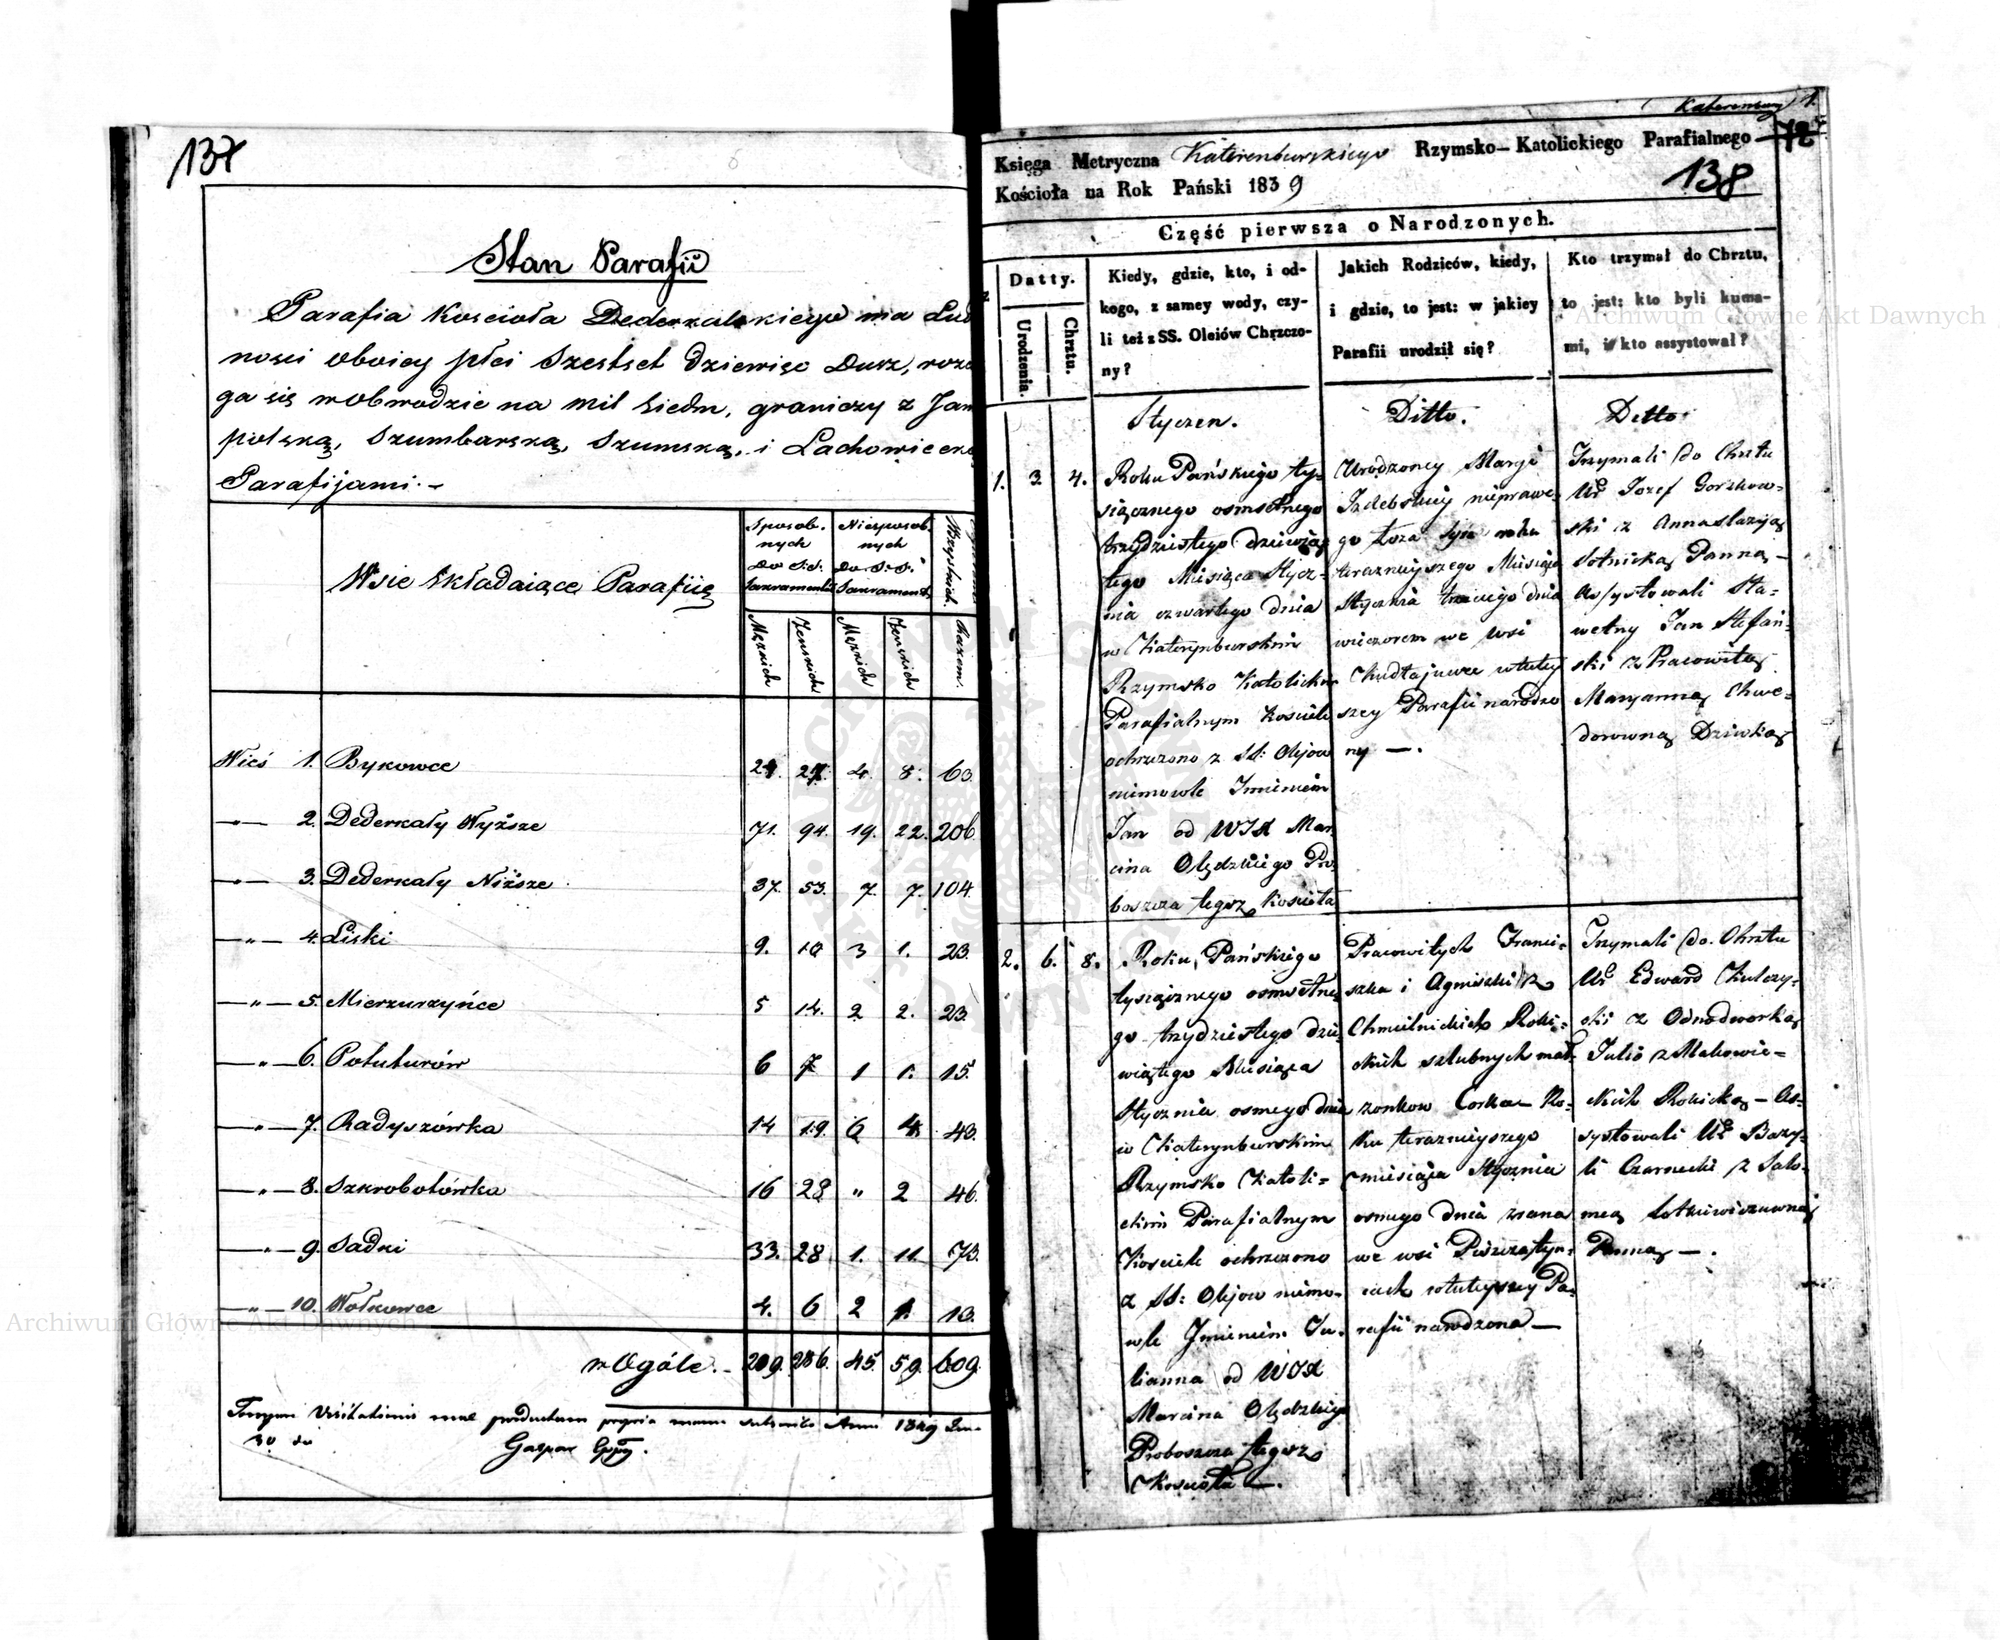 137
Stan Parafii
Parafia Kościoła Dederkalskiego ma Lud
ności oboiey płci Szesset dziewięć Dusz, rozcą
ga się w obwodzie na mil siedm, graniczy z Jam
polską, Szumbarską, Szumską, i Lachowiecką
Parafijami.-
Wsie składaiące Parafiię
Sposob. nych Do S.S. Sakramentów
Niesposob. nych Do S.S. Sakrament.
Wszystkich
Razem.
Męzkich Żenskich Męzkich Żenskich
Wieś 1. Bykowce 24. 27. 4. 8. 63.
-"- 2. Dederkały Wyższe 71. 94. 19. 22. 206.
-"- 3. Dederkały Niższe 37. 53. 7. 7. 104.
-"- 4. Liski 9. 10 3 1. 23.
-"- 5. Mierzurzyńce 5 14. 2 2. 23.
-"- 6. Połuturów 6 7 1 1. 15.
-"- 7. Radyszówka 14 19 6 4. 43.
-"- 8. Szkrobotówka 16 28 " 2 46.
-"- 9. Sadki 33. 28 1. 11. 73.
-"- 10. Wołkowce 4. 6 2 1. 13.
w Ogóle.- 219. 286. 45. 59. 609.
Anno 1849
30
Gaspar
Katerenburg 1.
72
Księga Metryczna Katerenburskiego Rzymsko-Katolickiego Parafialnego
Kościoła na Rok Pański 1839
138
Część pierwsza o Narodzonych.
Datty.
Urodzenia.
Chrztu.
Kiedy, gdzie, kto, i od-
kogo, z samey wody, czy-
li też z SS. Oleiów Chrzczo-
ny?
Jakich Rodziców, kiedy,
i gdzie, to jest: w jakiey
Parafii urodził się?
Kto trzymał do Chrztu,
to jest: kto byli kuma-
mi, i kto assystował?
Styczen.
Ditto.
Detto.
1. 3. 4.
Roku Pańskiego ty-
siącznego osmsetnego
trzydziestego dziewią
tego Miesiąca Stycz-
nia czwartego dnia
w Katerynburskim
Rzymsko Katolickim
Parafialnym Kościele
ochrzczono z SS: Olejow
niemowle Imieniem
Jan od WJX Mar
cina Olędzkiego Pro
boszcza tegoż Kościoła
Urodzoney Maryi
Izdebskiey niepraweg
go Łoża syn roku
teraznieyszego Miesiąca
Stycznia trzeciego dnia
wieczorem we wsi
Chudłajówce w tutey
szey Parafii narodzo
ny —.
Trzymali do Chrztu
Ur Jozef Gorskow-
ski z Annastazyją
Sotnicką Panną —
Assystowali Sla-
wetny Jan Stefań-
ski z Pracowitą
Maryanną Chwe-
dorowną Dziwką
2. 6. 8.
Roku Pańskiego
tysiącznego osmsetne
go trzydziestego dzie
wiątego Miesiąca
Stycznia osmego dnia
w Katerynburskim
Rzymsko Katoli-
ckim Parafialnym
Kościele ochrzczono
z SS: Olejow niemo-
wle Imieniem Ju-
lianna od WJX
Marcina Olędzkiego
Proboszcza tegoż
Kościoła —.
Pracowitych Franci-
szka i Agnieszki z
Chmielnickich Roki-
ckich szlubnych mał-
żonkow Corka — Ro-
ku teraznieyszego
miesiąca Stycznia
osmego dnia zrana
we wsi Piszczatyn-
cach w tuteyszey Pa-
rafii narodzona —
Trzymali do Chrztu
Ur Edward Kulczy-
cki z Odnodworką
Julią z Makowie-
ckich Rokicką — As-
systowali Ur Bazy-
li Czarnecki z Salo-
meą
Panną —.
Archiwum Główne Akt Dawnych
Archiwum Główne Akt Dawnych